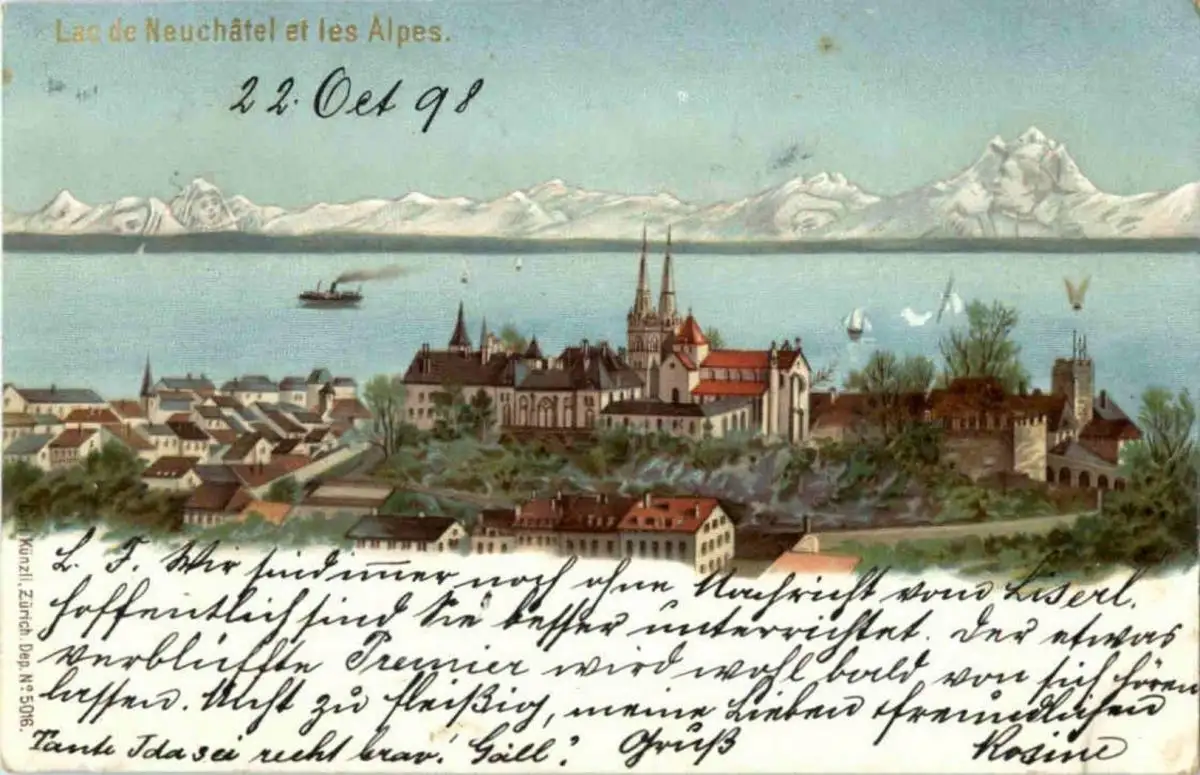 Lac de Neuchâtel et les Alpes.
22. Oct 98
L. F. Wir sind immer noch ohne Nachricht vom Liserl.
hoffentlich sind Sie besser unterrichtet. Der etwas
verblüffte Premier wird wohl bald von sich hören
lassen. Nicht zu fleißig, meine Lieben freundlichen
Tante Ida sei recht brav! Gäll? Gruß Rosine
Künzli, Zürich. Dep. No 5016.